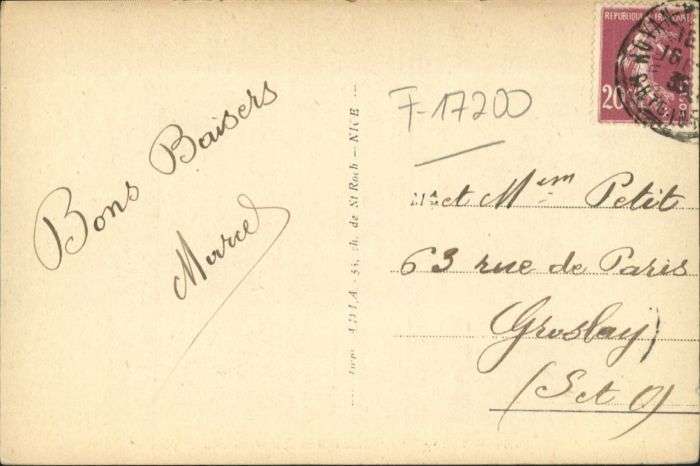 Bons Baisers
Marcel
ch. de St Roch – NICE
F-17200
REPUBLIQUE FRANÇAISE
20
M et Mem Petit
63 rue de Paris
Groslay
(S et O)